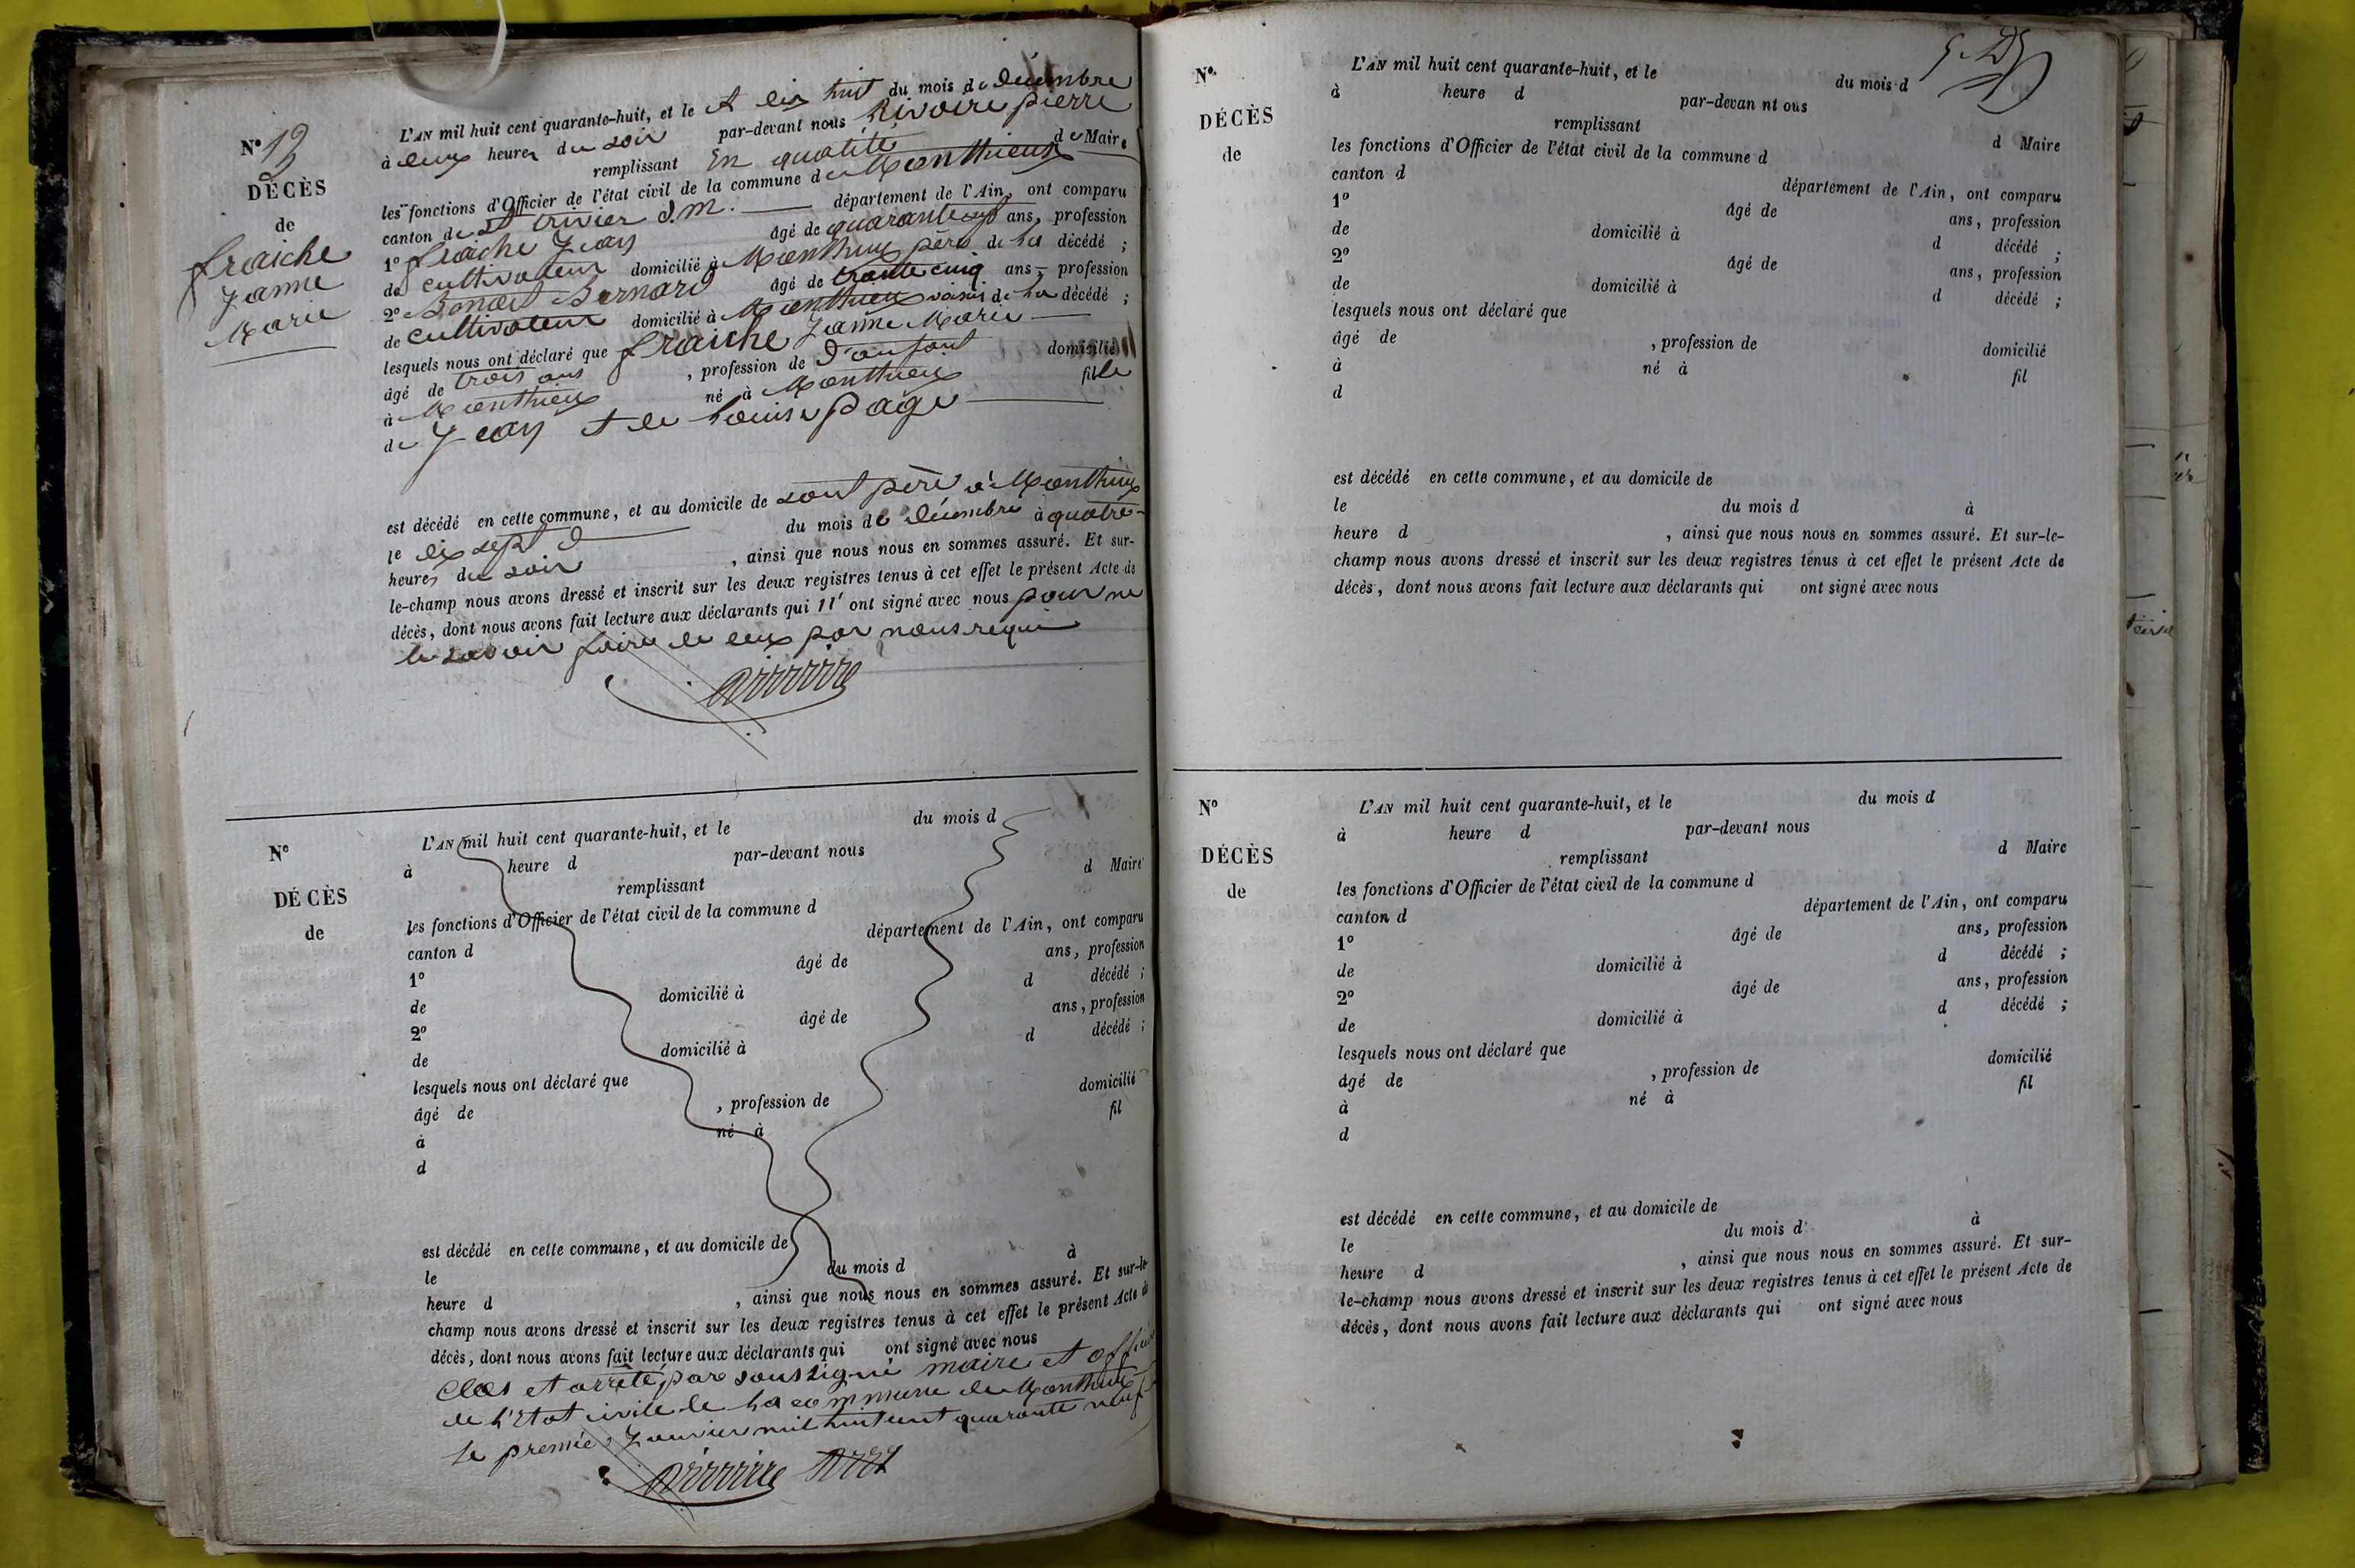 N° 13
DÉCÈS
de
fraiche
Janne
Marie
L'AN mil huit cent quarante-huit, et le dix huit du mois de décembre
à deux heures du soir par-devant nous Rivoire pierre
remplissant En qualité de Maire
les fonctions d'Officier de l'état civil de la commune de Monthieux
canton de St trivier S. M. département de l'Ain, ont comparu
1° fraiche Jean âgé de quarante ans, profession
de cultivateur domicilié à Monthieux père de la décédé ;
2° Benoit Bernard âgé de trante cinq ans, profession
de cultivateur domicilié à Monthieux voisin de la décédé ;
lesquels nous ont déclaré que fraiche Janne Marie
âgé de trois ans , profession de d'anfant domicilié
à Monthieux né à Monthieux fille
de Jean et de Louise page
est décédé en cette commune, et au domicile de sont père à Monthieux
le dix sept d du mois de décembre à quatre
heures du soir , ainsi que nous nous en sommes assuré. Et sur-
le-champ nous avons dressé et inscrit sur les deux registres tenus à cet effet le présent Acte de
décès, dont nous avons fait lecture aux déclarants qui n' ont signé avec nous pour ne
le savoir faire de eux par nous requi
Rivoire
N°
DÉCÈS
de
L'AN mil huit cent quarante-huit, et le du mois d
à heure d par-devant nous
remplissant d Maire
les fonctions d'Officier de l'état civil de la commune d
canton d département de l'Ain, ont comparu
1° âgé de ans, profession
de domicilié à d décédé ;
2° âgé de ans, profession
de domicilié à d décédé ;
lesquels nous ont déclaré que
âgé de , profession de domicilié
à né à fil
d
est décédé en cette commune, et au domicile de
le du mois d à
heure d , ainsi que nous nous en sommes assuré. Et sur-le-
champ nous avons dressé et inscrit sur les deux registres tenus à cet effet le présent Acte de
décès, dont nous avons fait lecture aux déclarants qui ont signé avec nous
Clos et arrêté par soussigné maire et officier
de l'Etat civile de la commune de Monthieux
le premier Janvier mil huit cent quarante neuf
Rivoire
N°
DÉCÈS
de
L'AN mil huit cent quarante-huit, et le du mois d
à heure d par-devan nt ous
remplissant d Maire
les fonctions d'Officier de l'état civil de la commune d
canton d département de l'Ain, ont comparu
1° âgé de ans, profession
de domicilié à d décédé ;
2° âgé de ans, profession
de domicilié à d décédé ;
lesquels nous ont déclaré que
âgé de , profession de domicilié
à né à fil
d
est décédé en cette commune, et au domicile de
le du mois d à
heure d , ainsi que nous nous en sommes assuré. Et sur-le-
champ nous avons dressé et inscrit sur les deux registres tenus à cet effet le présent Acte de
décès, dont nous avons fait lecture aux déclarants qui ont signé avec nous
N°
DÉCÈS
de
L'AN mil huit cent quarante-huit, et le du mois d
à heure d par-devant nous
remplissant d Maire
les fonctions d'Officier de l'état civil de la commune d
canton d département de l'Ain, ont comparu
1° âgé de ans, profession
de domicilié à d décédé ;
2° âgé de ans, profession
de domicilié à d décédé ;
lesquels nous ont déclaré que
âgé de , profession de domicilié
à né à fil
d
est décédé en cette commune, et au domicile de
le du mois d à
heure d , ainsi que nous nous en sommes assuré. Et sur-
le-champ nous avons dressé et inscrit sur les deux registres tenus à cet effet le présent Acte de
décès, dont nous avons fait lecture aux déclarants qui ont signé avec nous